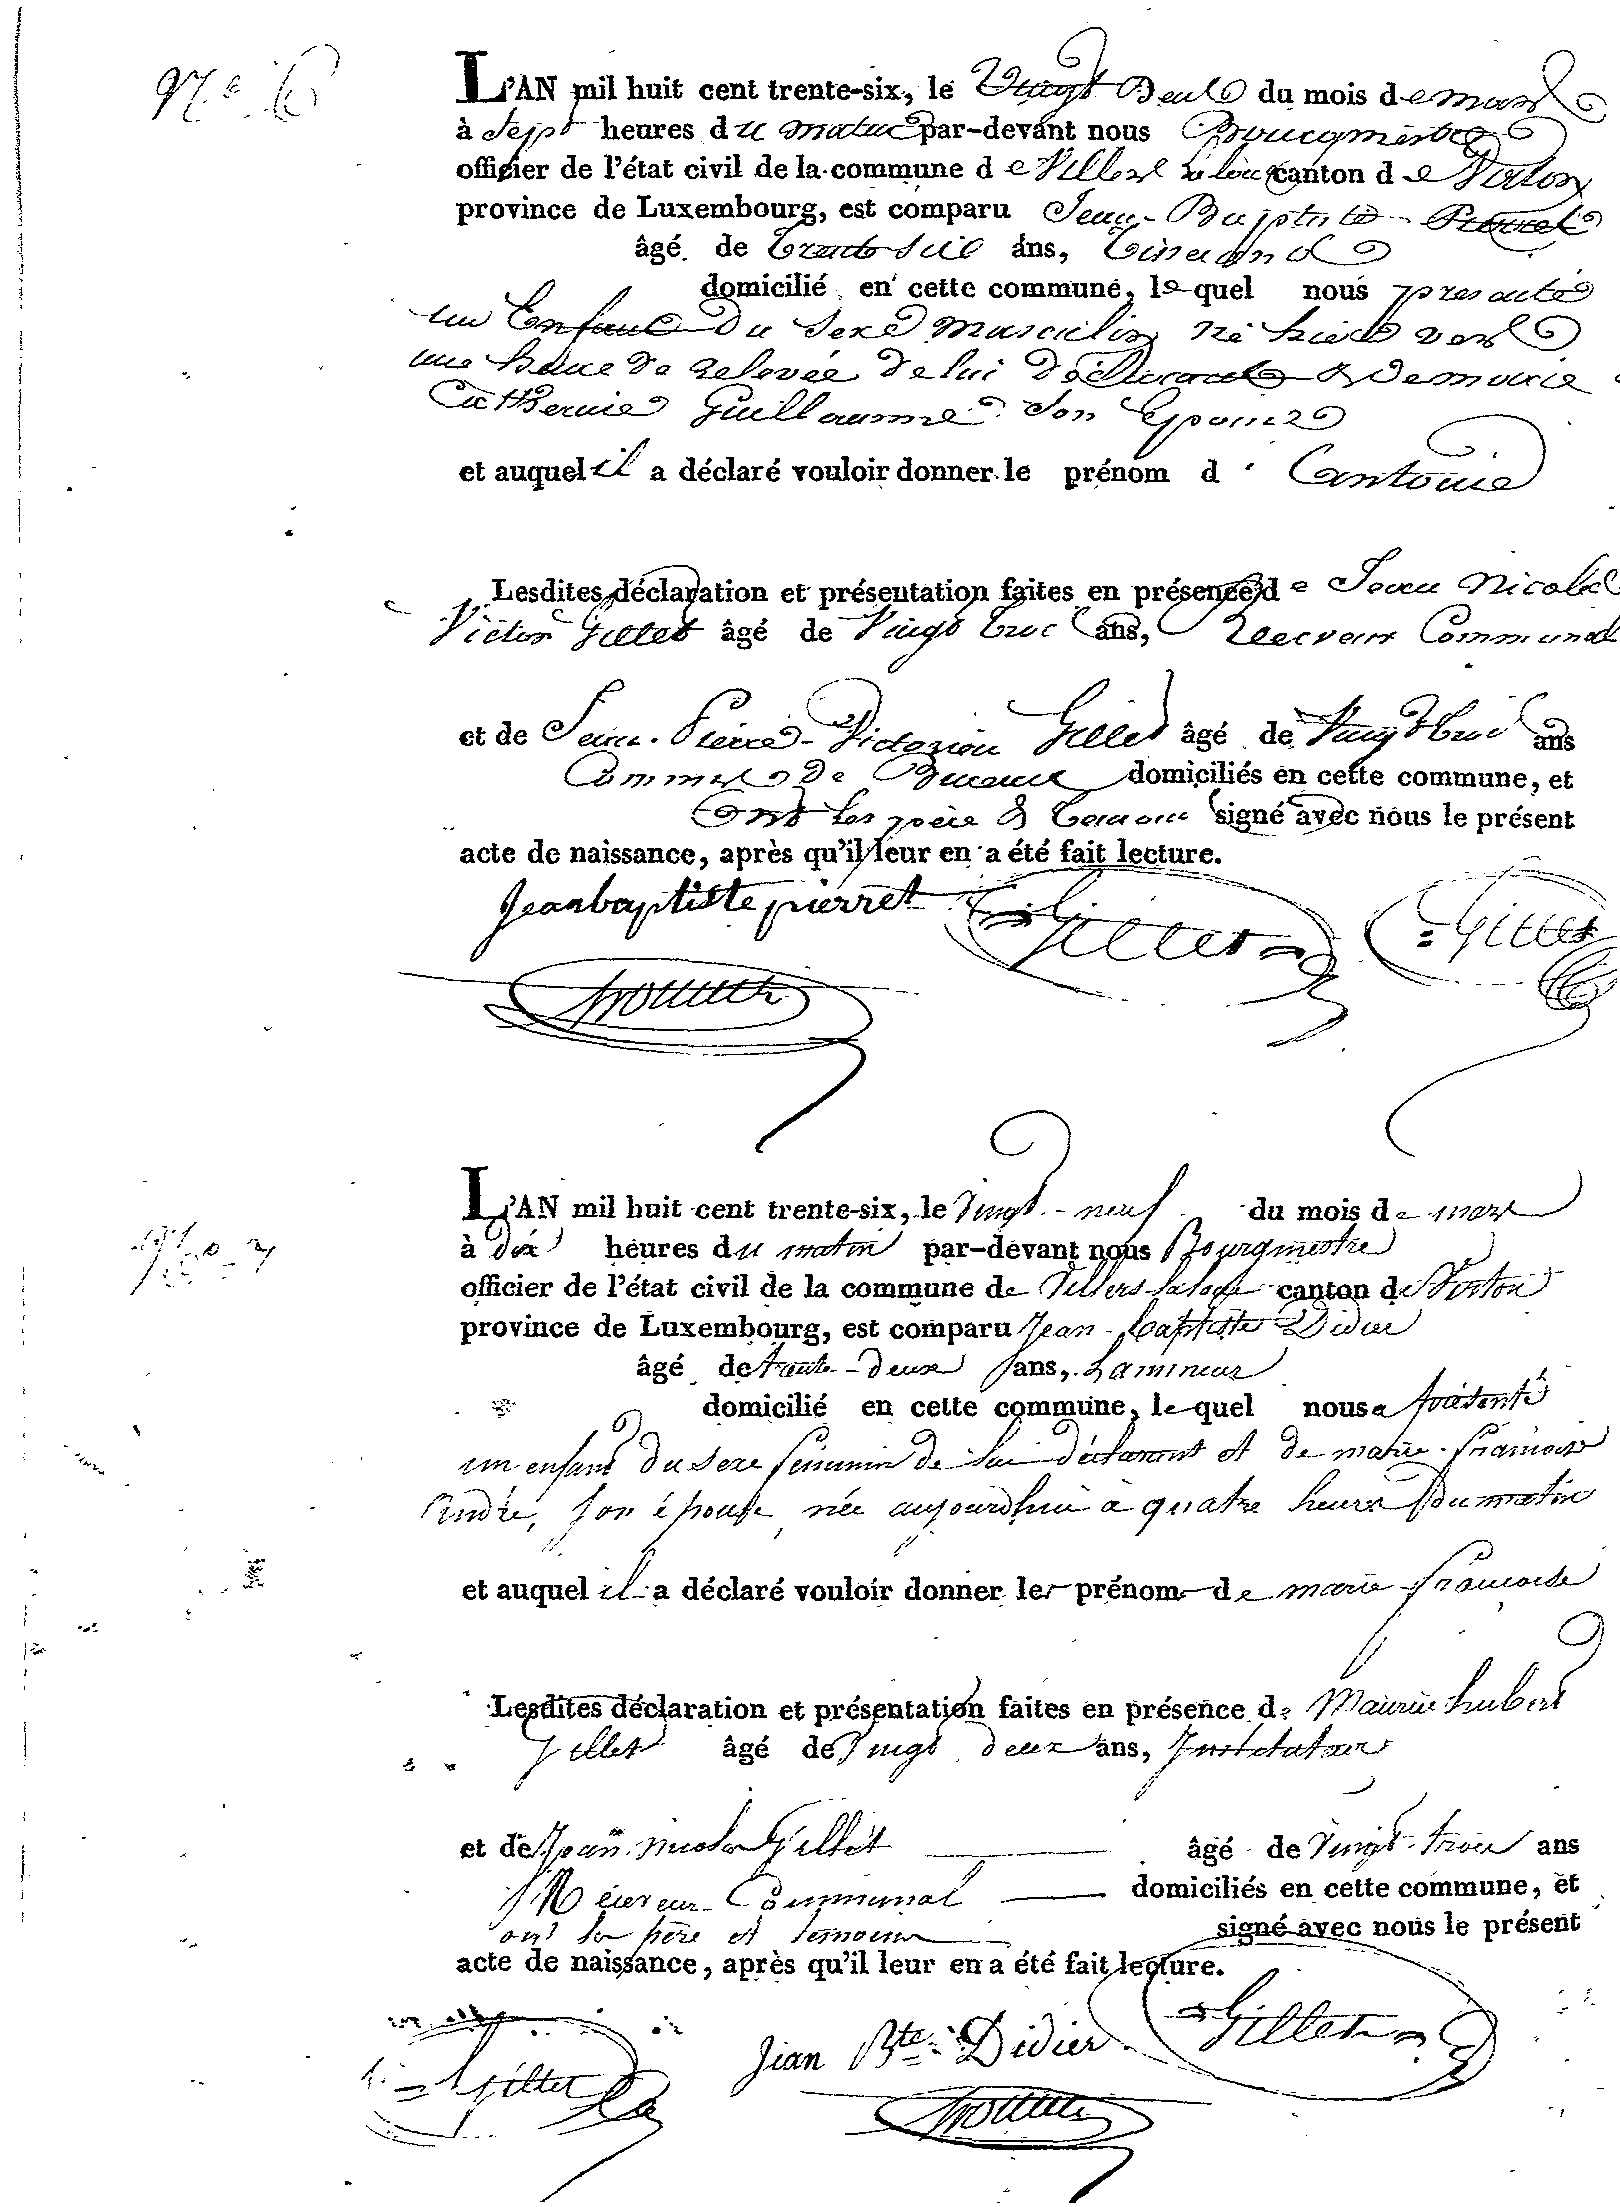 N.° 6
L'AN mil huit cent trente-six, le Vingt Deux du mois de mars
à Sept heures du matin par-devant nous Bourgmestre
officier de l'état civil de la commune de Villers la loue canton de Virton
province de Luxembourg, est comparu Jean-Baptiste Pierret
âgé de Trente Six ans, Tisserand
domicilié en cette commune, lequel nous presenté
un Enfant du Sexe masculin né hier vers
une heure de relevée de lui déclarant & de marie
Catherine Guillaume son Epouse
et auquel il a déclaré vouloir donner le prénom d' antoine
Lesdites déclaration et présentation faites en présence de Jean Nicolas
Victor Gillet âgé de Vingt trois ans, Receveur Communal
et de Jean-Pierre-Victorien Gillet âgé de Vingt trois ans
Commis de Bureau domiciliés en cette commune, et
ont les père & temoins signé avec nous le présent
acte de naissance, après qu'il leur en a été fait lecture.
Jeanbaptiste pierret Gillet Gillet
L'AN mil huit cent trente-six, le Vingt-neuf du mois de mars
à dix heures du matin par-devant nous Bourgmestre
officier de l'état civil de la commune de Villers-la-loue canton de Virton
province de Luxembourg, est comparu Jean-baptiste Didier
âgé de trente-deux ans, Lamineur
domicilié en cette commune, lequel nous a présenté
un enfant du sexe féminin de lui déclarant et de marie-françoise
André, son épouse, née aujourdhui à quatre heures du matin
et auquel il a déclaré vouloir donner les prénoms de marie-françoise
Lesdites déclaration et présentation faites en présence de Maurice hubert
Gillet âgé de Vingt deux ans, Instituteur
et de Jean nicolas Gillet âgé de Vingt-trois ans
Réceveur Communal domiciliés en cette commune, et
ont les père et temoins signé avec nous le présent
acte de naissance, après qu'il leur en a été fait lecture.
Gillet Jean Bte. Didier Gillet